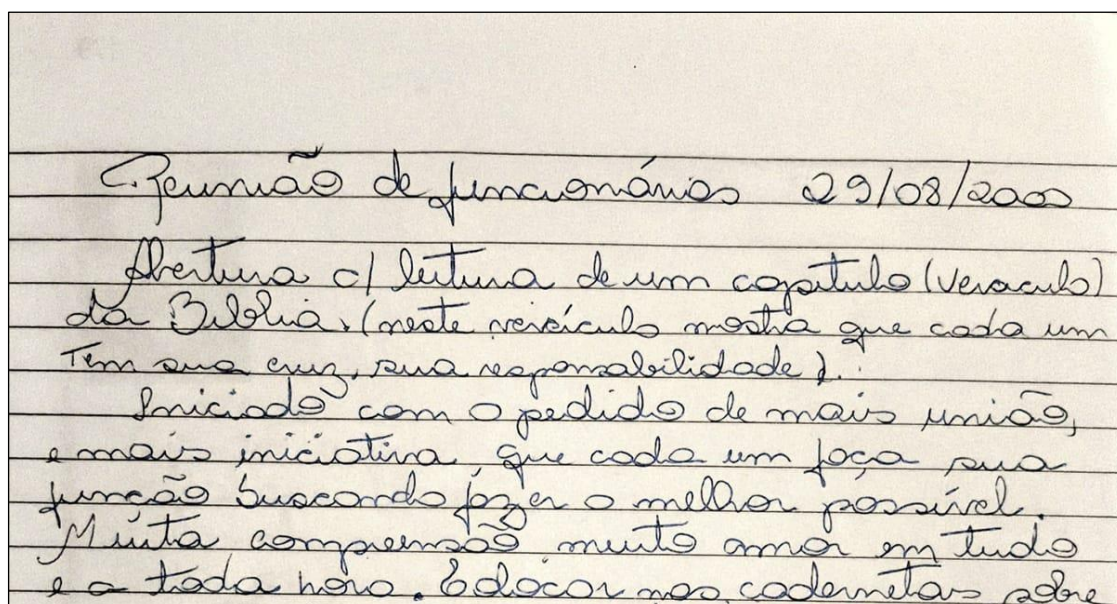 Reunião de funcionários 29/08/2000
Abertura c/ leitura de um capitulo (versiculo)
da Biblia. (neste versículo mostra que cada um
Tem sua cruz, sua responsabilidade).
Iniciado com o pedido de mais união,
e mais iniciativa, que cada um faça sua
função buscando fazer o melhor possível.
Muita compreensão, muito amor em tudo
e a toda hora. Colocar nas cadernetas sobre